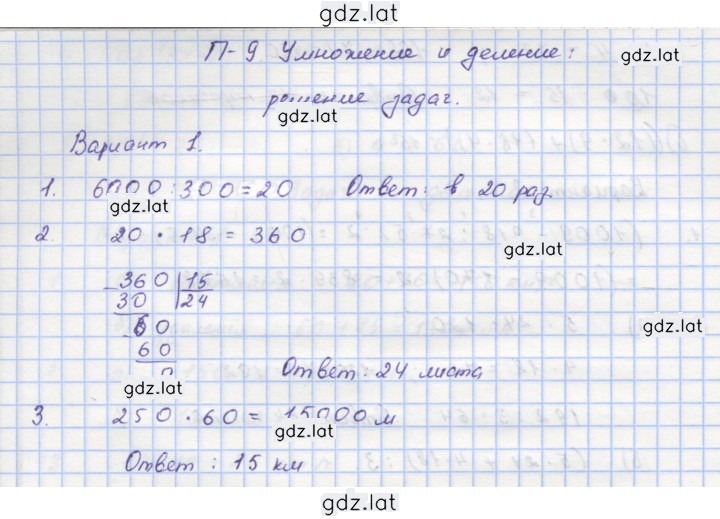 gdz.lat
П-9 Умножение и деление: gdz.lat
решение задач.
gdz.lat
Вариант 1.
1. 6000 : 300 = 20 Ответ: в 20 раз.
gdz.lat
2. 20 · 18 = 360
gdz.lat
360 15
30 24
60
gdz.lat
60
0 Ответ: 24 листа
gdz.lat
3. 250 · 60 = 15000 м
gdz.lat
Ответ: 15 км
gdz.lat